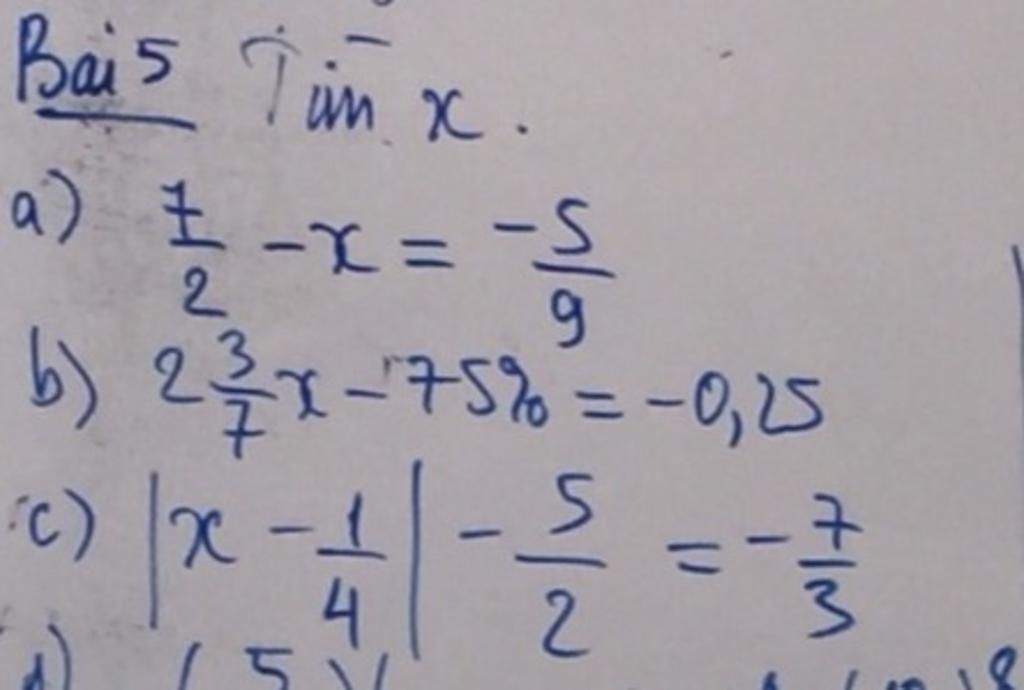 Bài 5 Tìm x.
a) 7/2 - x = -5/9
b) 2 3/7 x - 75% = -0,25
c) |x - 1/4| - 5/2 = -7/3
d) ( 5 )